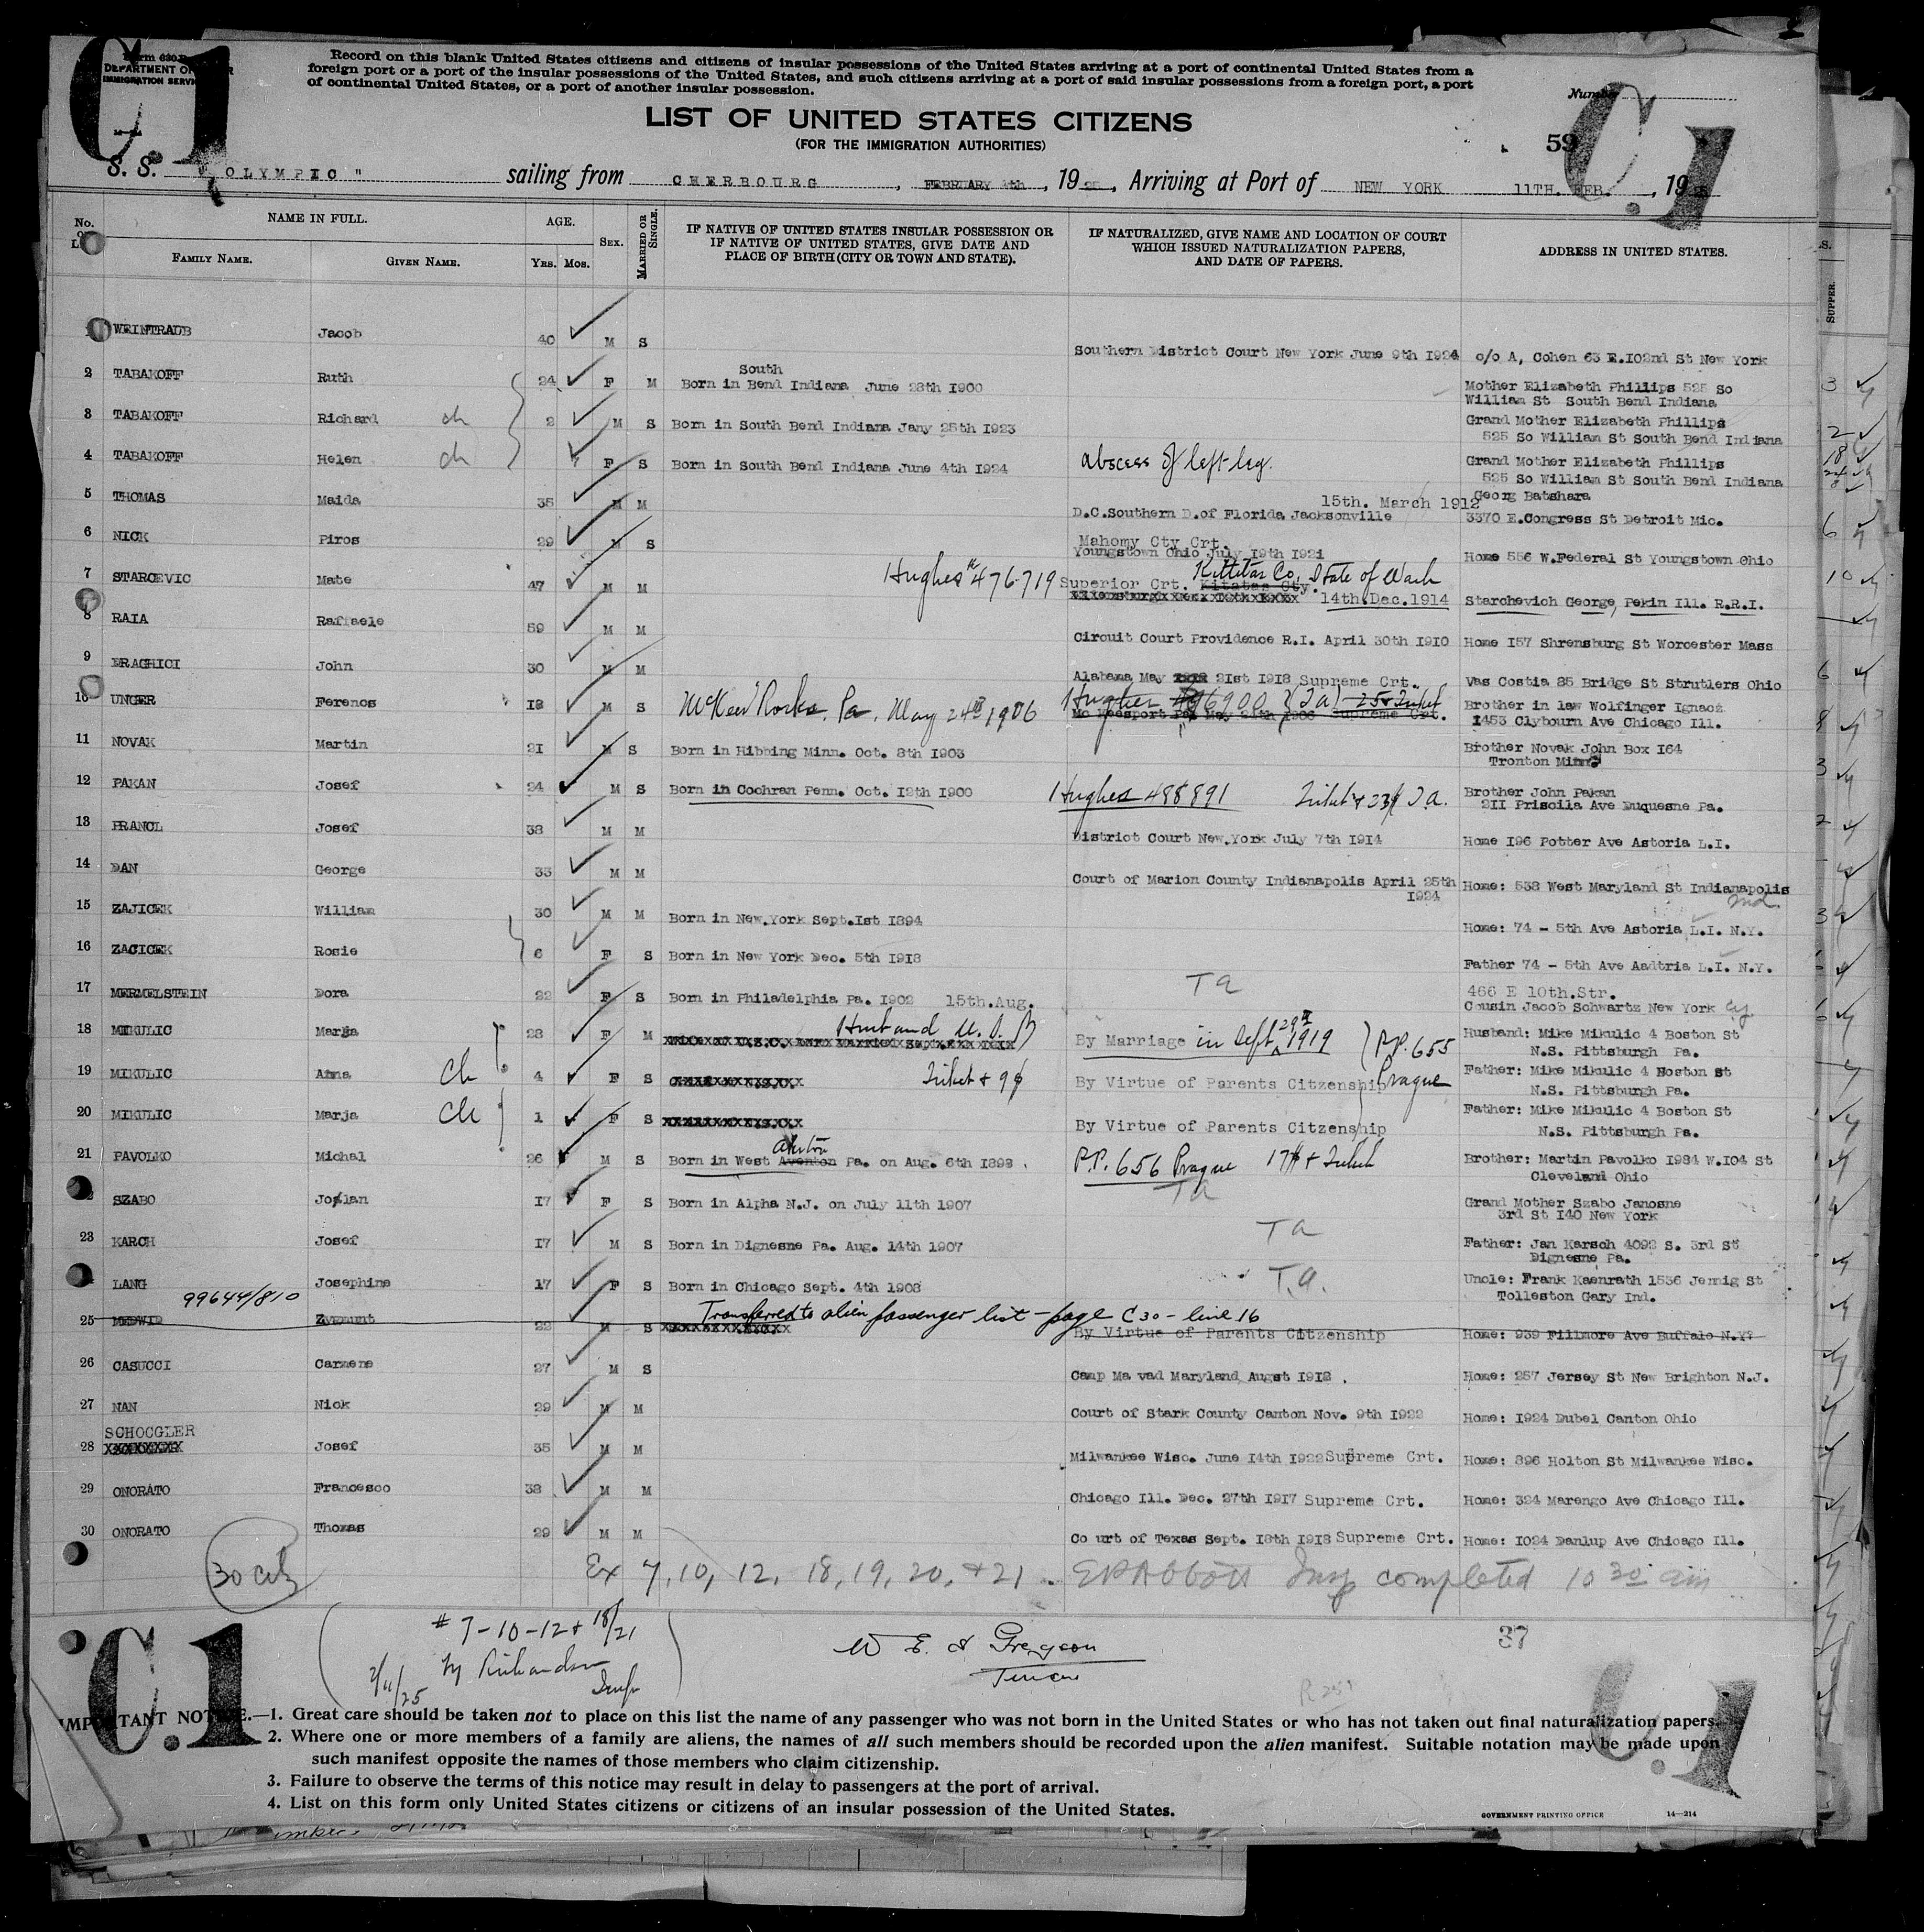 C.1
Form 630 B
DEPARTMENT OF LABOR
IMMIGRATION SERVICE
Record on this blank United States citizens and citizens of insular possessions of the United States arriving at a port of continental United States from a
foreign port or a port of the insular possessions of the United States, and such citizens arriving at a port of said insular possessions from a foreign port, a port
of continental United States, or a port of another insular possession.
Number
C.1
LIST OF UNITED STATES CITIZENS
(FOR THE IMMIGRATION AUTHORITIES)
59
S. S. "OLYMPIC" sailing from CHERBOURG, FEBRUARY 4th, 1925, Arriving at Port of NEW YORK 11TH. FEB., 1925
No. on List
NAME IN FULL.
FAMILY NAME.
GIVEN NAME.
AGE.
YRS. MOS.
SEX.
MARRIED OR SINGLE.
IF NATIVE OF UNITED STATES INSULAR POSSESSION OR
IF NATIVE OF UNITED STATES, GIVE DATE AND
PLACE OF BIRTH (CITY OR TOWN AND STATE).
IF NATURALIZED, GIVE NAME AND LOCATION OF COURT
WHICH ISSUED NATURALIZATION PAPERS,
AND DATE OF PAPERS.
ADDRESS IN UNITED STATES.
SUPPER.
1 WEINTRAUB Jacob 40 M S Southern District Court New York June 9th 1924 c/o A, Cohen 63 E.102nd St New York
2 TABAKOFF Ruth 24 F M Born in South Bend Indiana June 28th 1900 Mother Elizabeth Phillips 525 So
William St South Bend Indiana
3 TABAKOFF Richard ch 2 M S Born in South Bend Indiana Jany 25th 1923 Grand Mother Elizabeth Phillips
525 So William St South Bend Indiana
4 TABAKOFF Helen ch F S Born in South Bend Indiana June 4th 1924 abscess of left leg. Grand Mother Elizabeth Phillips
525 So William St South Bend Indiana
5 THOMAS Maida 35 M M 15th. March 1912
D.C.Southern D.of Florida Jacksonville
Georg Batshara
3370 E.Congress St Detroit Mic.
6 NICK Piros 29 M S Mahomy Cty Crt.
Youngstown Ohio July 19th 1921 Home 556 W.Federal St Youngstown Ohio
7 STARCEVIC Mate 47 M M Hughes 476719 Superior Crt. Kitatas Cty. Kittitas Co. State of Wash
14th.Dec.1914 Starchevich George, Pekin Ill. R.R.I.
8 RAIA Raffaele 59 M M Circuit Court Providence R.I. April 30th 1910 Home 157 Shrensburg St Worcester Mass
9 DRAGHICI John 30 M M Alabama May 21st 1918 Supreme Crt. Vas Costia 85 Bridge St Strutlers Ohio
10 UNGER Ferencs 18 M S McKees Rocks, Pa. May 24th 1906 Hughes 496900 (Ta) 25¢ Ticket
Mc Keesport Pa. May 24th 1906 Supreme Crt.
Brother in law Wolfinger Ignacz
1453 Clybourn Ave Chicago Ill.
11 NOVAK Martin 21 M S Born in Hibbing Minn. Oct. 8th 1903 Brother Novak John Box 164
Tronton Minn
12 PAKAN Josef 24 M S Born in Cochran Penn. Oct. 12th 1900 Hughes 488891 Ticket & 23¢ T.a. Brother John Pakan
211 Priscila Ave Duquesne Pa.
13 FRANCL Josef 38 M M District Court New.York July 7th 1914 Home 196 Potter Ave Astoria L.I.
14 DAN George 33 M M Court of Marion County Indianapolis April 25th
1924
Home: 538 West Maryland St Indianapolis
Ind.
15 ZAJICEK William 30 M M Born in New.York Sept.1st 1894 Home: 74 - 5th Ave Astoria L.I. N.Y.
16 ZACICEK Rosie 6 F S Born in New York Dec. 5th 1918 Father 74 - 5th Ave Aadtria L.I. N.Y.
17 MERMELSTEIN Dora 22 F S Born in Philadelphia Pa. 1902 15th.Aug. Ta 466 E 10th.Str.
Cousin Jacob Schwartz New York Cy
18 MIKULIC Marja 28 F M Husband U.S. By Marriage in Sept 29th 1919 P.P. 655 Prague Husband: Mike Mikulic 4 Boston St
N.S. Pittsburgh Pa.
19 MIKULIC Anna Ch 4 F S Ticket & 9¢ By Virtue of Parents Citzenship Father: Mike Mikulic 4 Boston St
N.S. Pittsburgh Pa.
20 MIKULIC Marja Ch 1 F S By Virtue of Parents Citzenship Father: Mike Mikulic 4 Boston St
N.S. Pittsburgh Pa.
21 PAVOLKO Michal 26 M S Born in West Aventon Pa. on Aug. 6th 1898. P.P. 656 Prague 17¢ + Ticket Brother: Martin Pavolko 1984 W.104 St
Cleveland Ohio
22 SZABO Joslan 17 F S Born in Alpha N.J. on July 11th 1907 Ta Grand Mother Szabo Janosne
3rd St 140 New York
23 KARCH Josef 17 M S Born in Dignesne Pa. Aug. 14th 1907 Ta Father: Jan Karsch 4092 S. 3rd St
Dignesne Pa.
24 LANG Josephine 17 F S Born in Chicago Sept. 4th 1908 T.a. Uncle: Frank Kaenrath 1536 Jennig St
Tolleston Gary Ind.
99644/810
25 MEDWID Zygmunt 22 M S Transferred to alien passenger list - page C30 - line 16
By Virtue of Parents Citzenship Home: 939 Fillmore Ave Buffalo N.Y.
26 CASUCCI Carmene 27 M S Camp Ma vad Maryland Augst 1918 . Home: 257 Jersey St New Brighton N.J.
27 NAN Nick 29 M M Court of Stark County Canton Nov. 9th 1922 Home: 1924 Dubel Canton Ohio
SCHOCGLER
28 XXXXXXXX Josef 35 M M Milwankee Wisc. June 14th 1922 Supreme Crt. Home: 896 Holton St Milwankee Wisc.
29 ONORATO Francesco 38 M M Chicago Ill. Dec. 27th 1917 Supreme Crt. Home: 324 Marengo Ave Chicago Ill.
30 ONORATO Thomas 29 M M Co urt of Texas Sept. 18th 1918 Supreme Crt. Home: 1024 Danlup Ave Chicago Ill.
30 cits
Ex 7, 10, 12, 18, 19, 20, + 21. E R Abbott Insp completed 10 30 am
# 7-10-12 + 18/21
by Richardson
Insp
2/11/25
37
C.1
C.1
IMPORTANT NOTICE.—1. Great care should be taken not to place on this list the name of any passenger who was not born in the United States or who has not taken out final naturalization papers.
2. Where one or more members of a family are aliens, the names of all such members should be recorded upon the alien manifest. Suitable notation may be made upon
such manifest opposite the names of those members who claim citizenship.
3. Failure to observe the terms of this notice may result in delay to passengers at the port of arrival.
4. List on this form only United States citizens or citizens of an insular possession of the United States.
GOVERNMENT PRINTING OFFICE 14—214